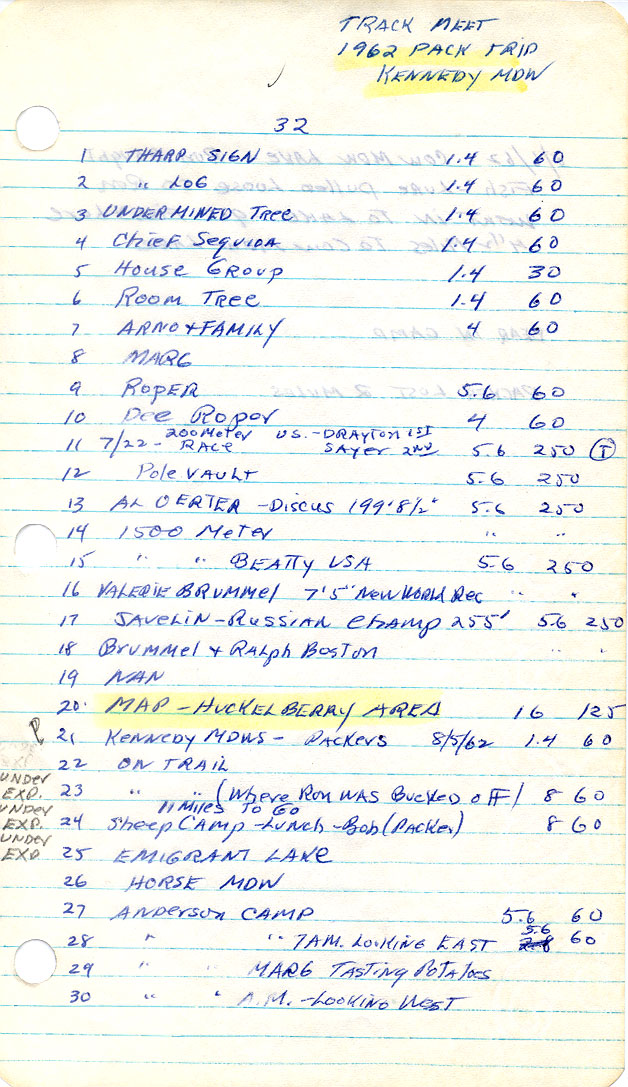 TRACK MEET
1962 PACK TRIP
KENNEDY MDW
32
1 THARP SIGN 1.4 60
2 " LOG 1.4 60
3 UNDERMINED Tree 1.4 60
4 Chief Sequioa 1.4 60
5 House Group 1.4 30
6 Room Tree 1.4 60
7 ARNO + FAMILY 4 60
8 MARG
9 ROPER 5.6 60
10 Dee Roper 4 60
11 7/22 - 200 Meter RACE U.S. - DRAYTON 1ST SAYER 2ND 5.6 250 T
12 Pole VAULT 5.6 250
13 AL OERTER - Discus 199'8½" 5.6 250
14 1500 Meter " "
15 " " BEATTY USA 5.6 250
16 VALERIE BRUMMEl 7'5" New WORLD Rec " "
17 JAVELIN - RUSSIAN Champ 255' 5.6 250
18 Brummel + RAlph BOSTON " "
19 NAN
20. MAP - HUCKELBERRY AREA 16 125
P 21 KENNEDY MDWS - PACKERS 8/5/62 1.4 60
22 ON TRAIL
UNDER EXP. 23 " " (Where Ron WAS BUCKED off) 8 60
11 Miles TO GO
UNDER EXP. 24 Sheep CAMP - Lunch - Bob (PACKER) 8 60
UNDER EXP 25 EMIGRANT LAKE
26 HORSE MDW
27 ANDERSON CAMP 5.6 60
28 " " 7AM. LOOKING EAST 5.6 60
29 " " MARG TASTING POTATOES
30 " " A.M. - LOOKING WEST